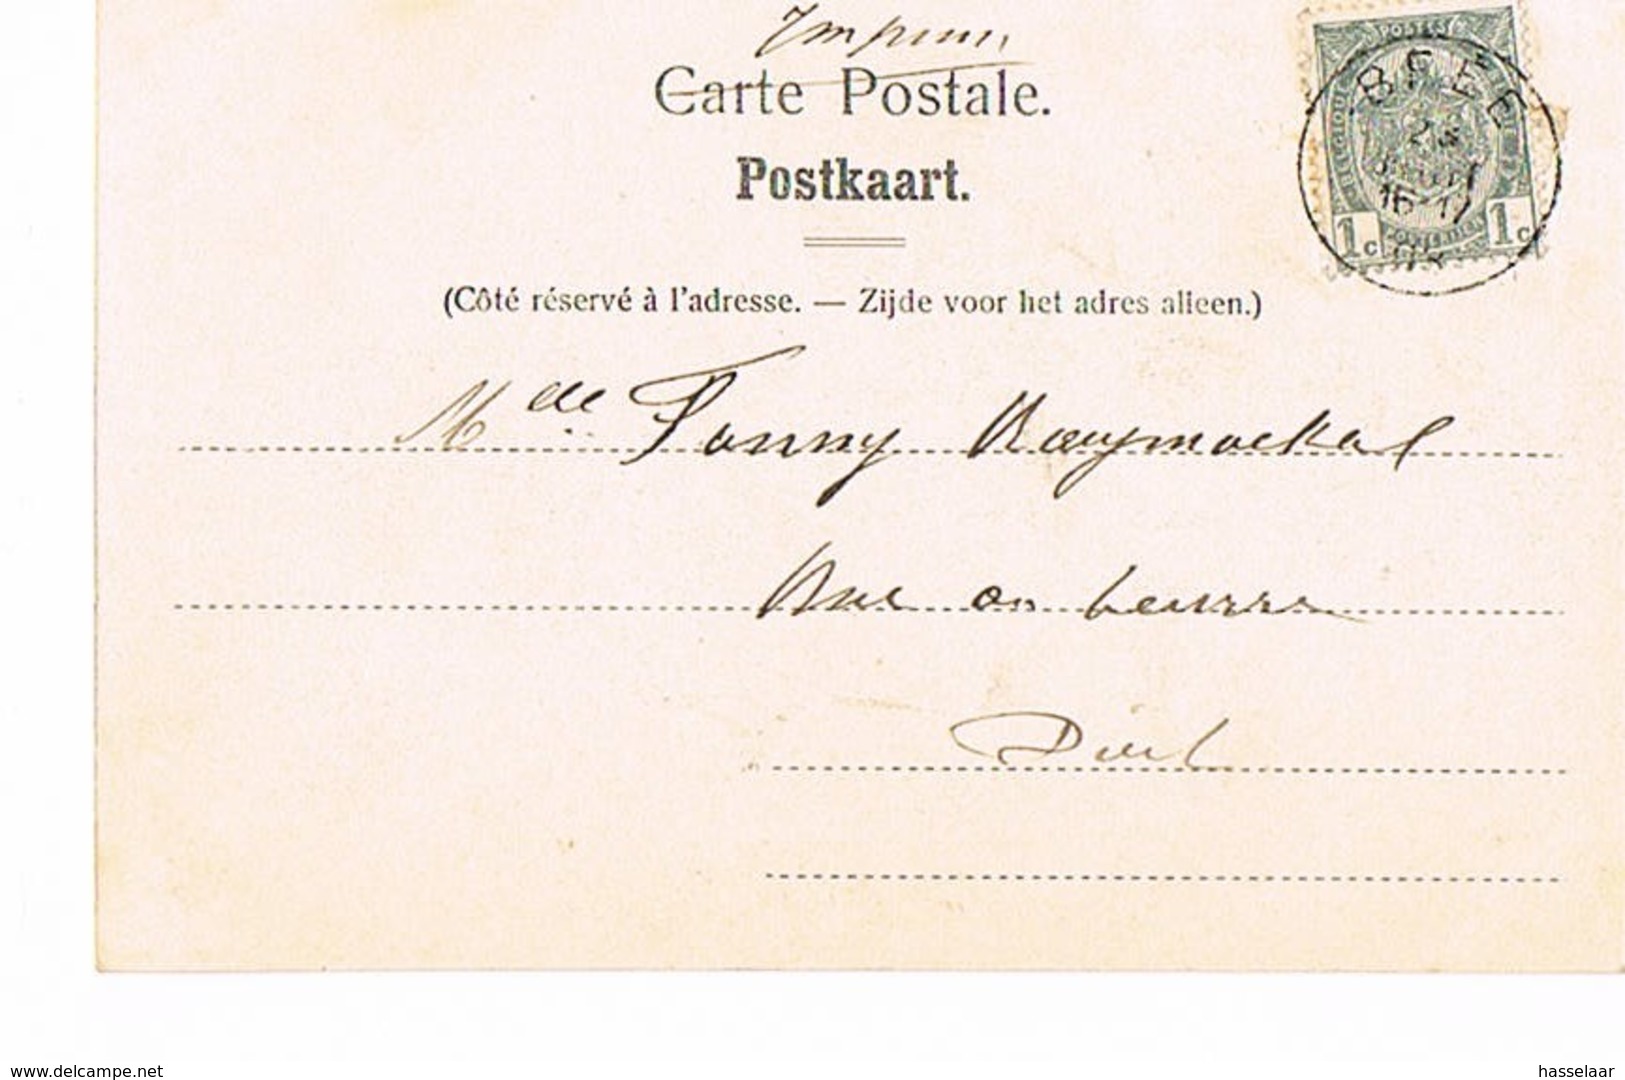 Imprim
Carte Postale.
Postkaart.
(Côté réservé à l'adresse. — Zijde voor het adres alleen.)
POSTES
BREE
16-17
1c 1c
Mde Fanny Raeymaekal
Rue au beurre
Diest
www.delcampe.net
hasselaar